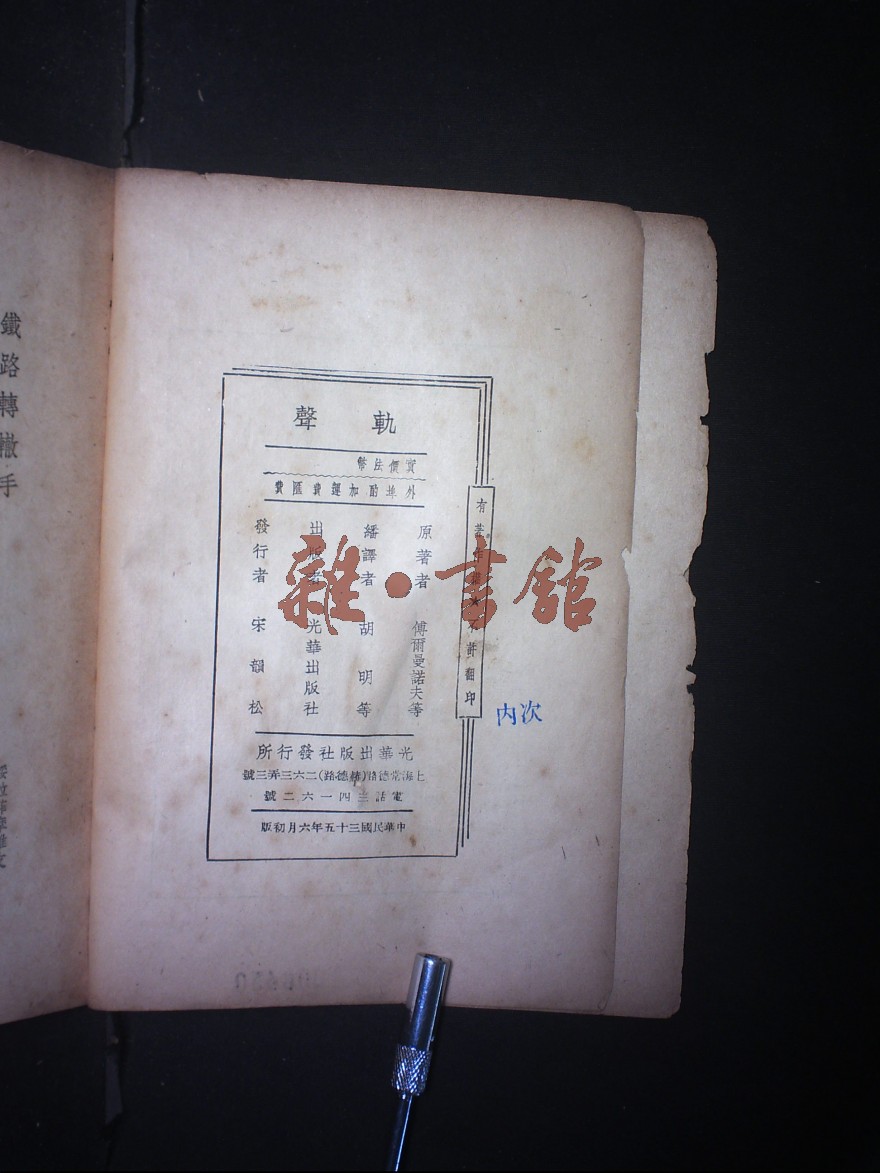 軌聲
實價法幣
外埠酌加運費匯費
原著者 傅爾曼諾夫等
繙譯者 胡明等
出版者 光華出版社
發行者 宋韻松
光華出版社發行所
上海常德路(赫德路)二六三弄三號
電話三四一六二號
中華民國三十五年六月初版
有著作權★不許翻印
内次
雜·書館
鐵路轉轍手